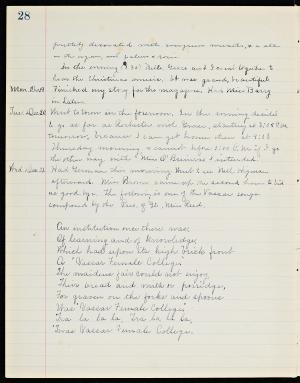 28
prettily decorated with evergreen wreaths, & a star
In the evening Nell, Grace and I went together to
hear the Christmas music. It was grand, beautiful
Mon. Dec 19 Finished my story for the magazine. Had Miss Barry
Tues. Dec 20 Went to town in the forenoon. In the evening decided
to go as far as Rochester with Grace, starting at P.M.
tomorrow, because I can get home then at
Thursday morning & cannot before P.M. if I go
the other way with Miss as I intended.
Wed. Dec 21 Had German this morning that I was Nell Hyman
afterwards. Miss Brown came up the second hour to bid
us good bye. The following is one of the Vassar songs
composed by the Pres. of Miss Reed.
An institution once there was,
Of learning and of knowledge,
Which had upon its high brick front
A "Vassar Female College."
The maidens fair could not enjoy
Their bread and milk or porridge,
For graven on the forks and spoons
Was "Vassar Female College,"
Tra la la la, Tra la la la,
'Twas Vassar Female College.